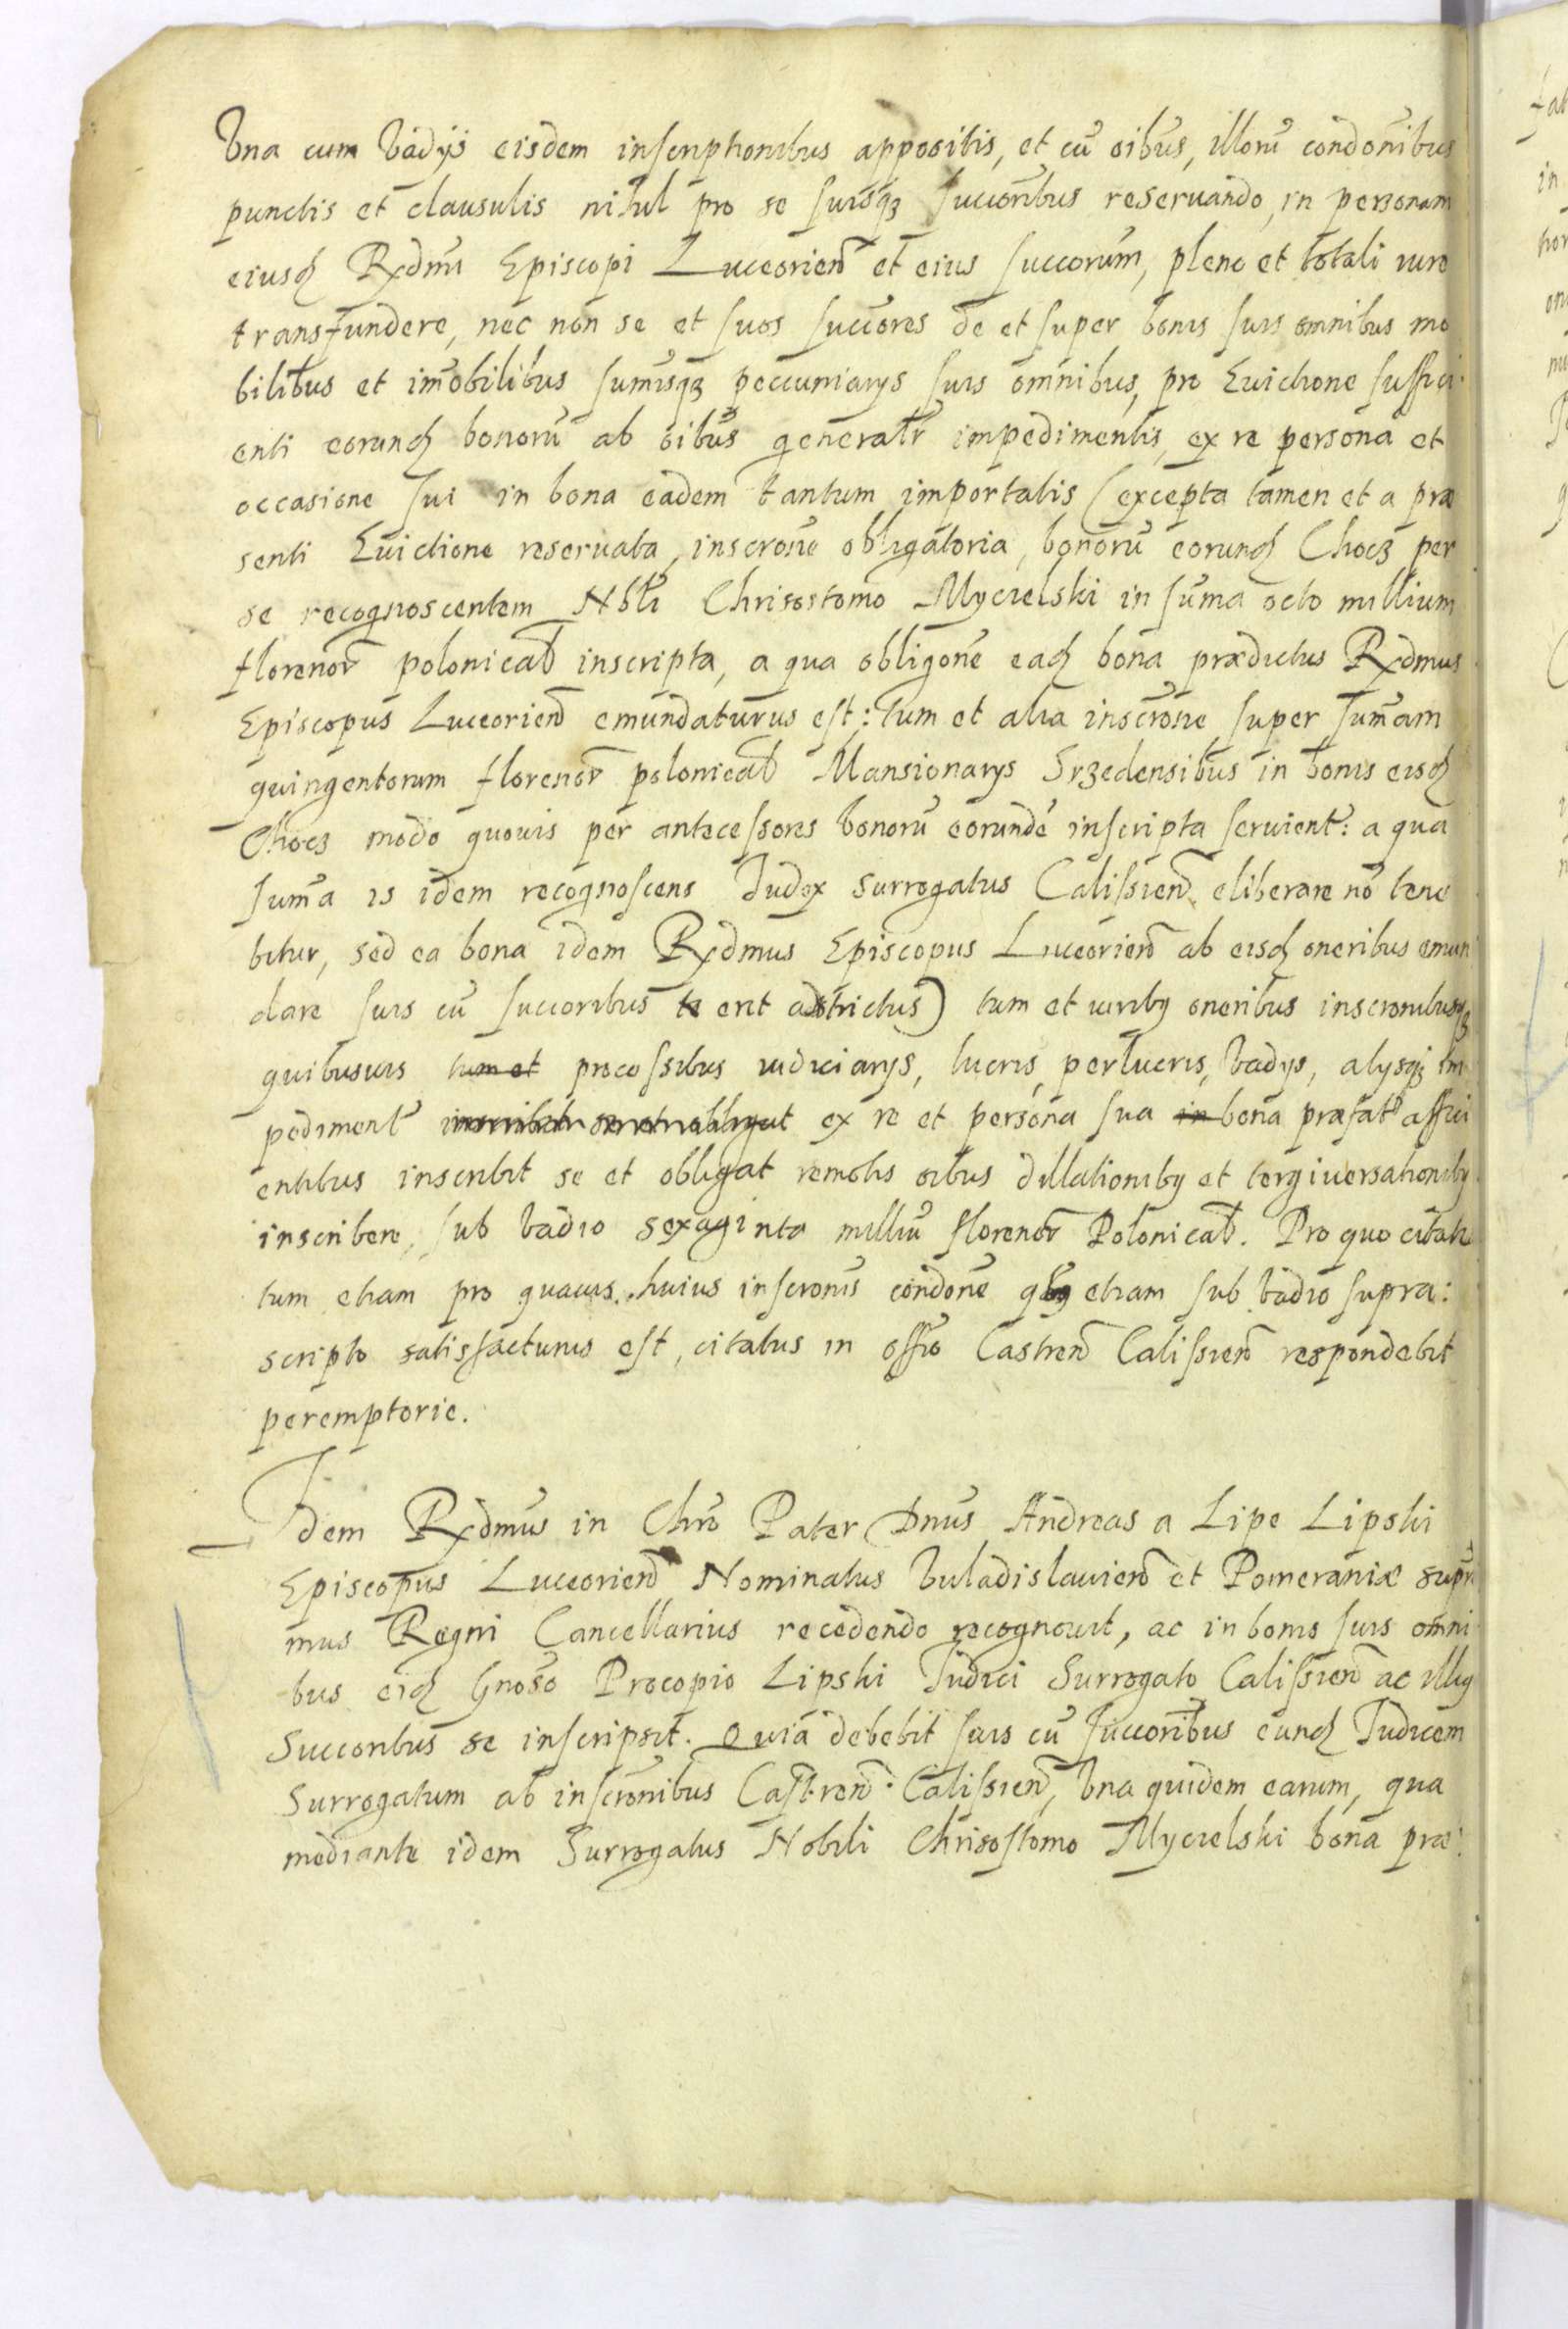 Vna cum Vadijs eisdem inscriptionibus appositis, et cũ oibus, illorũ condonibus
punctis et clausulis nihil pro se suisqʒ succoribus reseruando, in personam
eiusd Rxdmi Episcopi Luceorien et eius succorum, pleno et totali iure
transfundere, nec non se et suos succores de et super bonis suis omnibus mo
bilibus et imobilibus sumisqʒ peccuniarys suis omnibus, pro Euictione suffici:
enti eorund bonorũ ab oibus generalr impedimentis, ex re persona et
occasione sui in bona eadem tantum importatis (excepta tamen et a præ
senti Euictione reseruata, inscrone obligatoria, bonorũ eorund Chocz per
se recognoscentem Nbli Chrisostomo Mycielski in suma octo millium
florenor polonical inscripta, a qua obligone ead bona prædictus Rxdmus
Episcopus Luceorien emundaturus est: tum et alia inscrone, super sumam
quingentorum florenor polonical Mansionarys Srzedensibus in bonis eisd
Chocz modo quouis per antecessores bonorũ eorundẽ inscripta seruient: a qua
suma is idem recognoscens Iudex Surrogatus Calissien eliberare nõ tene
bitur, sed ea bona idem Rxdmus Episcopus Luceorien ab eisd oneribus emun
dare suis cũ succoribus te erit adstrictus) tum et iuriby oneribus inscronibusqʒ
quibusuis tum et processibus iudiciarys, lucris, perlucris, Vadys, alysqʒ im
pediment inscribit se et obligat ex re et persona sua in bona præfat affici
entibus inscribit se et obligat remotis oibus dillationiby et tergiuersationiby
inscribere, sub Vadio sexaginta milliũ florenor Polonical. Pro quo citatus
tum etiam pro quauis huius inscronis condone qby etiam sub Vadio supra:
scripto satisfacturus est, citatus in offio Castren Calissien respondebit
peremptorie.
Idem Rxdmus in Chro Pater Dnus Andreas a Lipe Lipski
Episcopus Luceorien Nominatus Vuladislauien et Pomeraniæ supre
mus Regni Cancellarius recedendo recognouit, ac in bonis suis omni
bus eid Gnoso Procopio Lipski Iudici Surrogato Calissien ac illig
Succoribus se inscripsit. Quia debebit suis cũ succoribus eund Iudicem
Surrogatum ab inscronibus Castren Calissien, Vna quidem earum, qua
mediante idem Surrogatus Nobili Chrisostomo Mycielski bona præ: